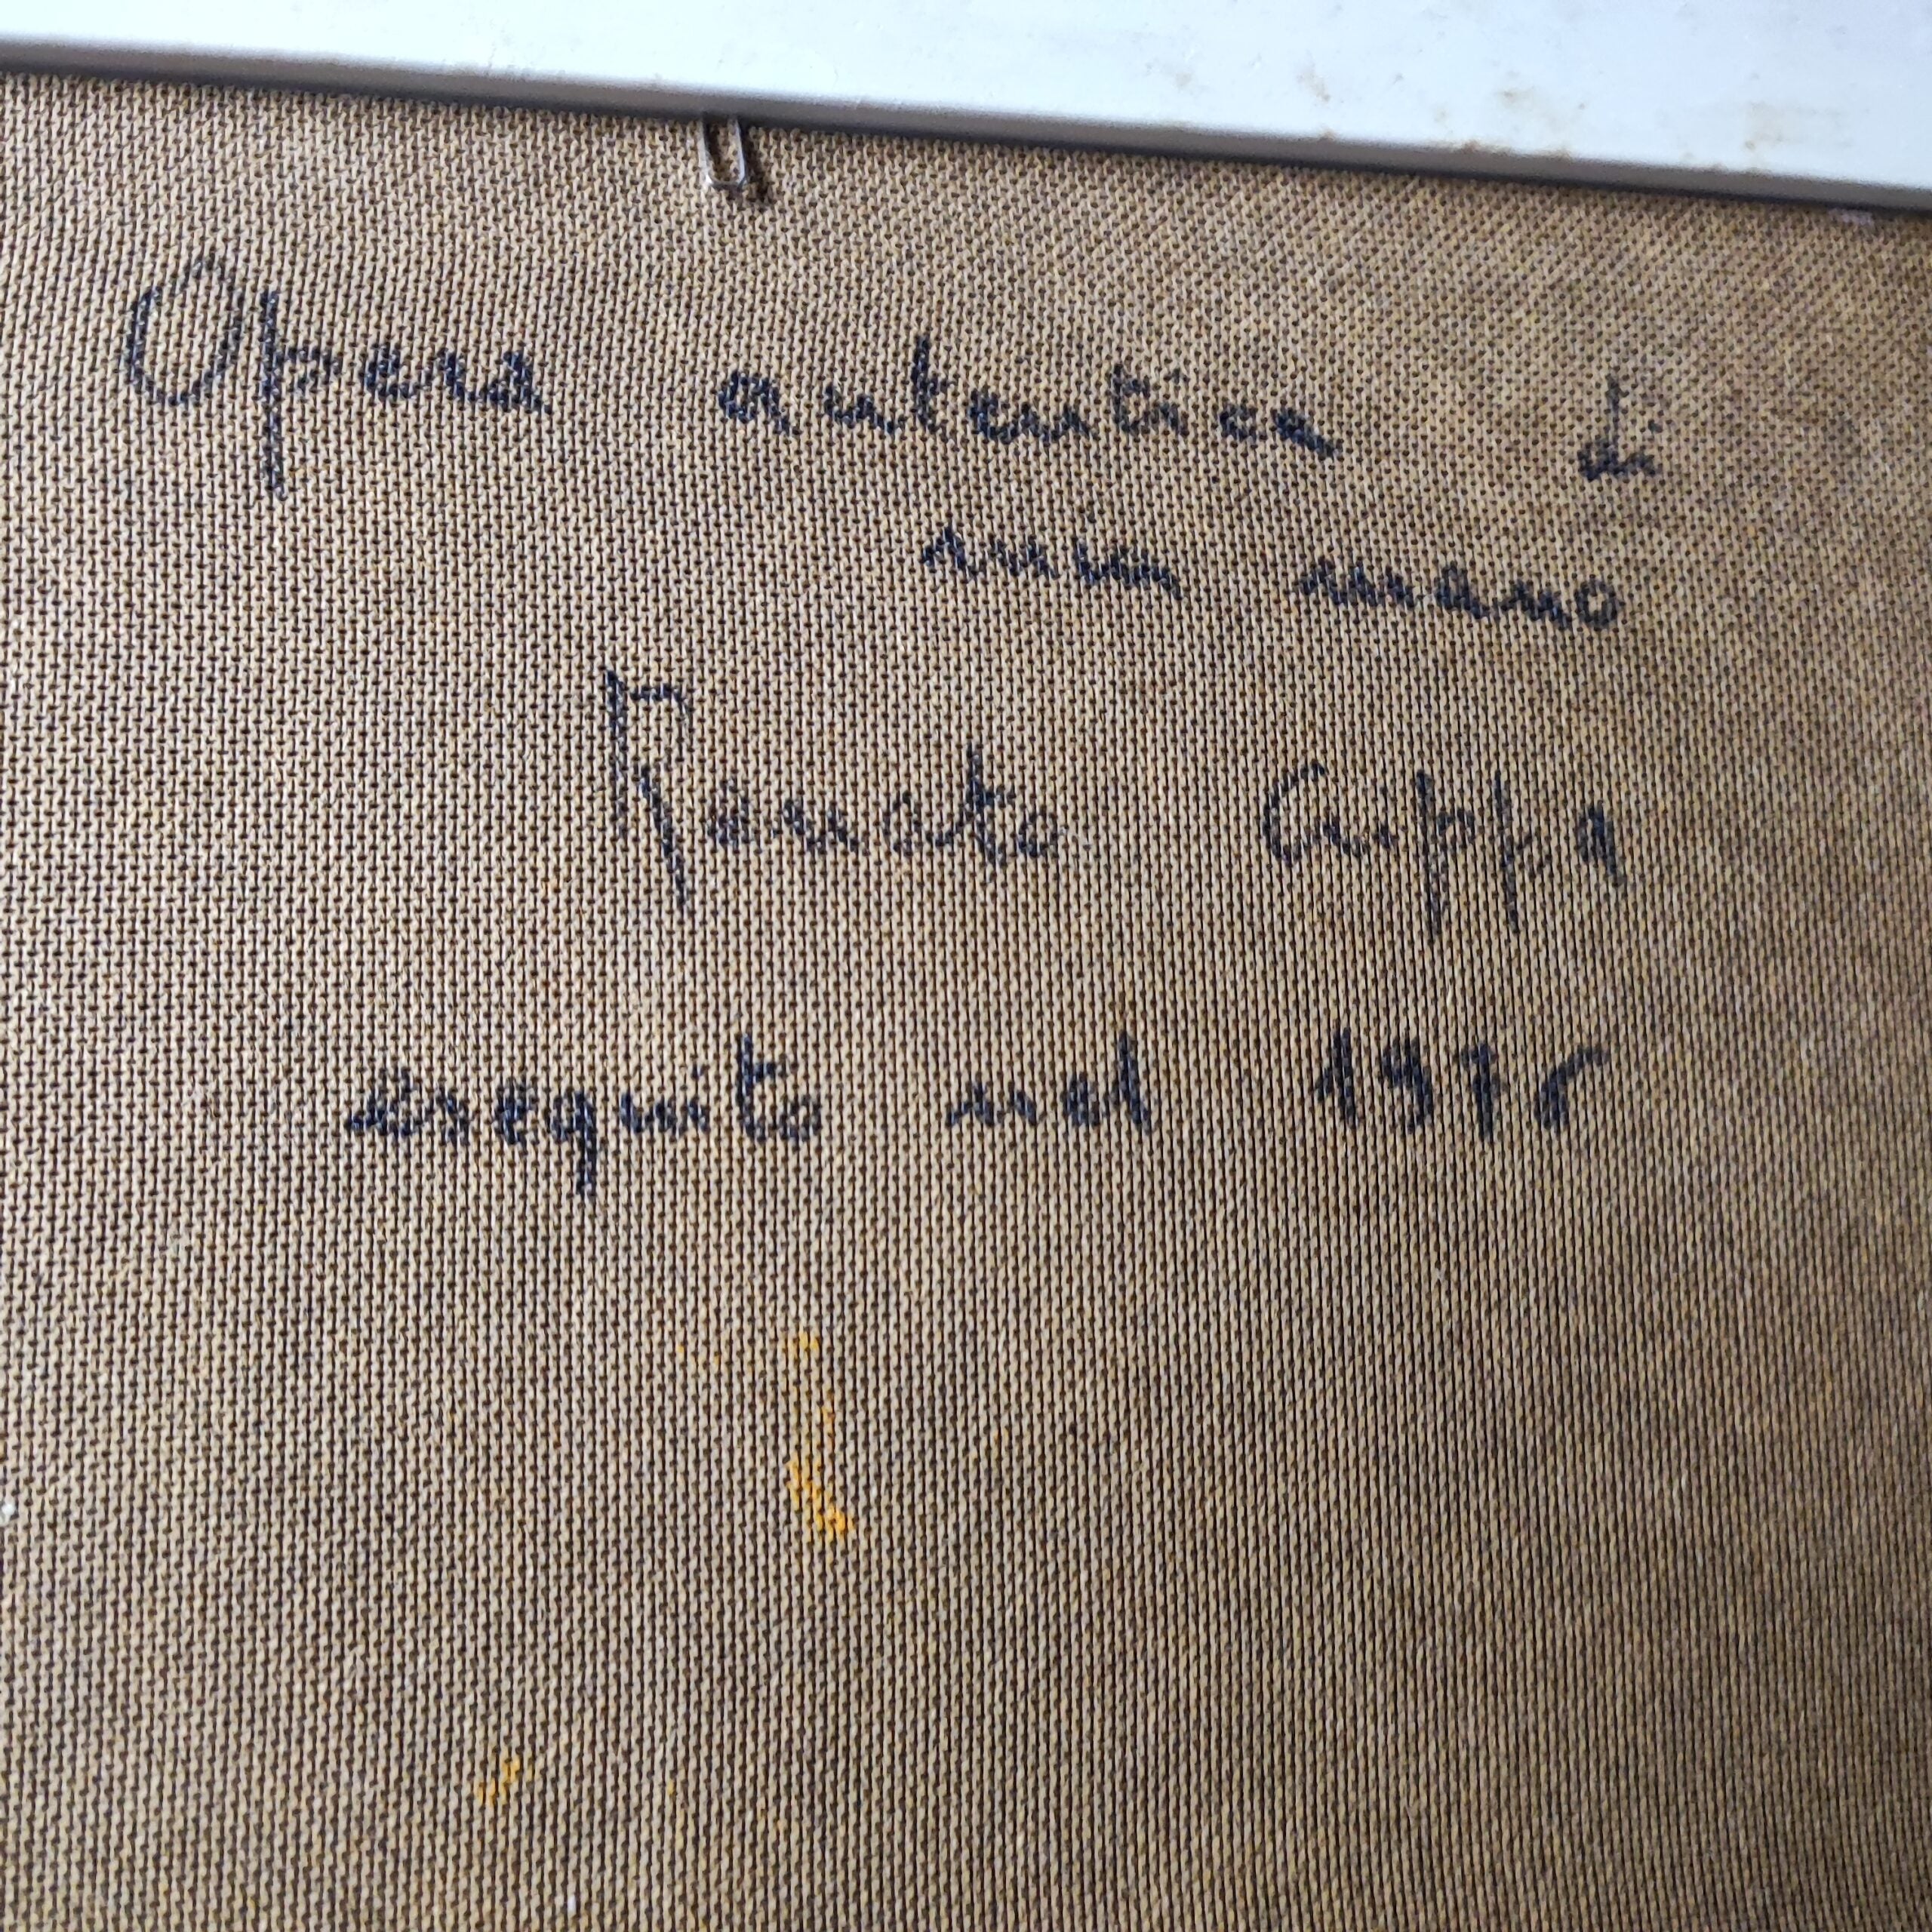 Opera autentica di
mia mano
Renato
eseguito nel 1976